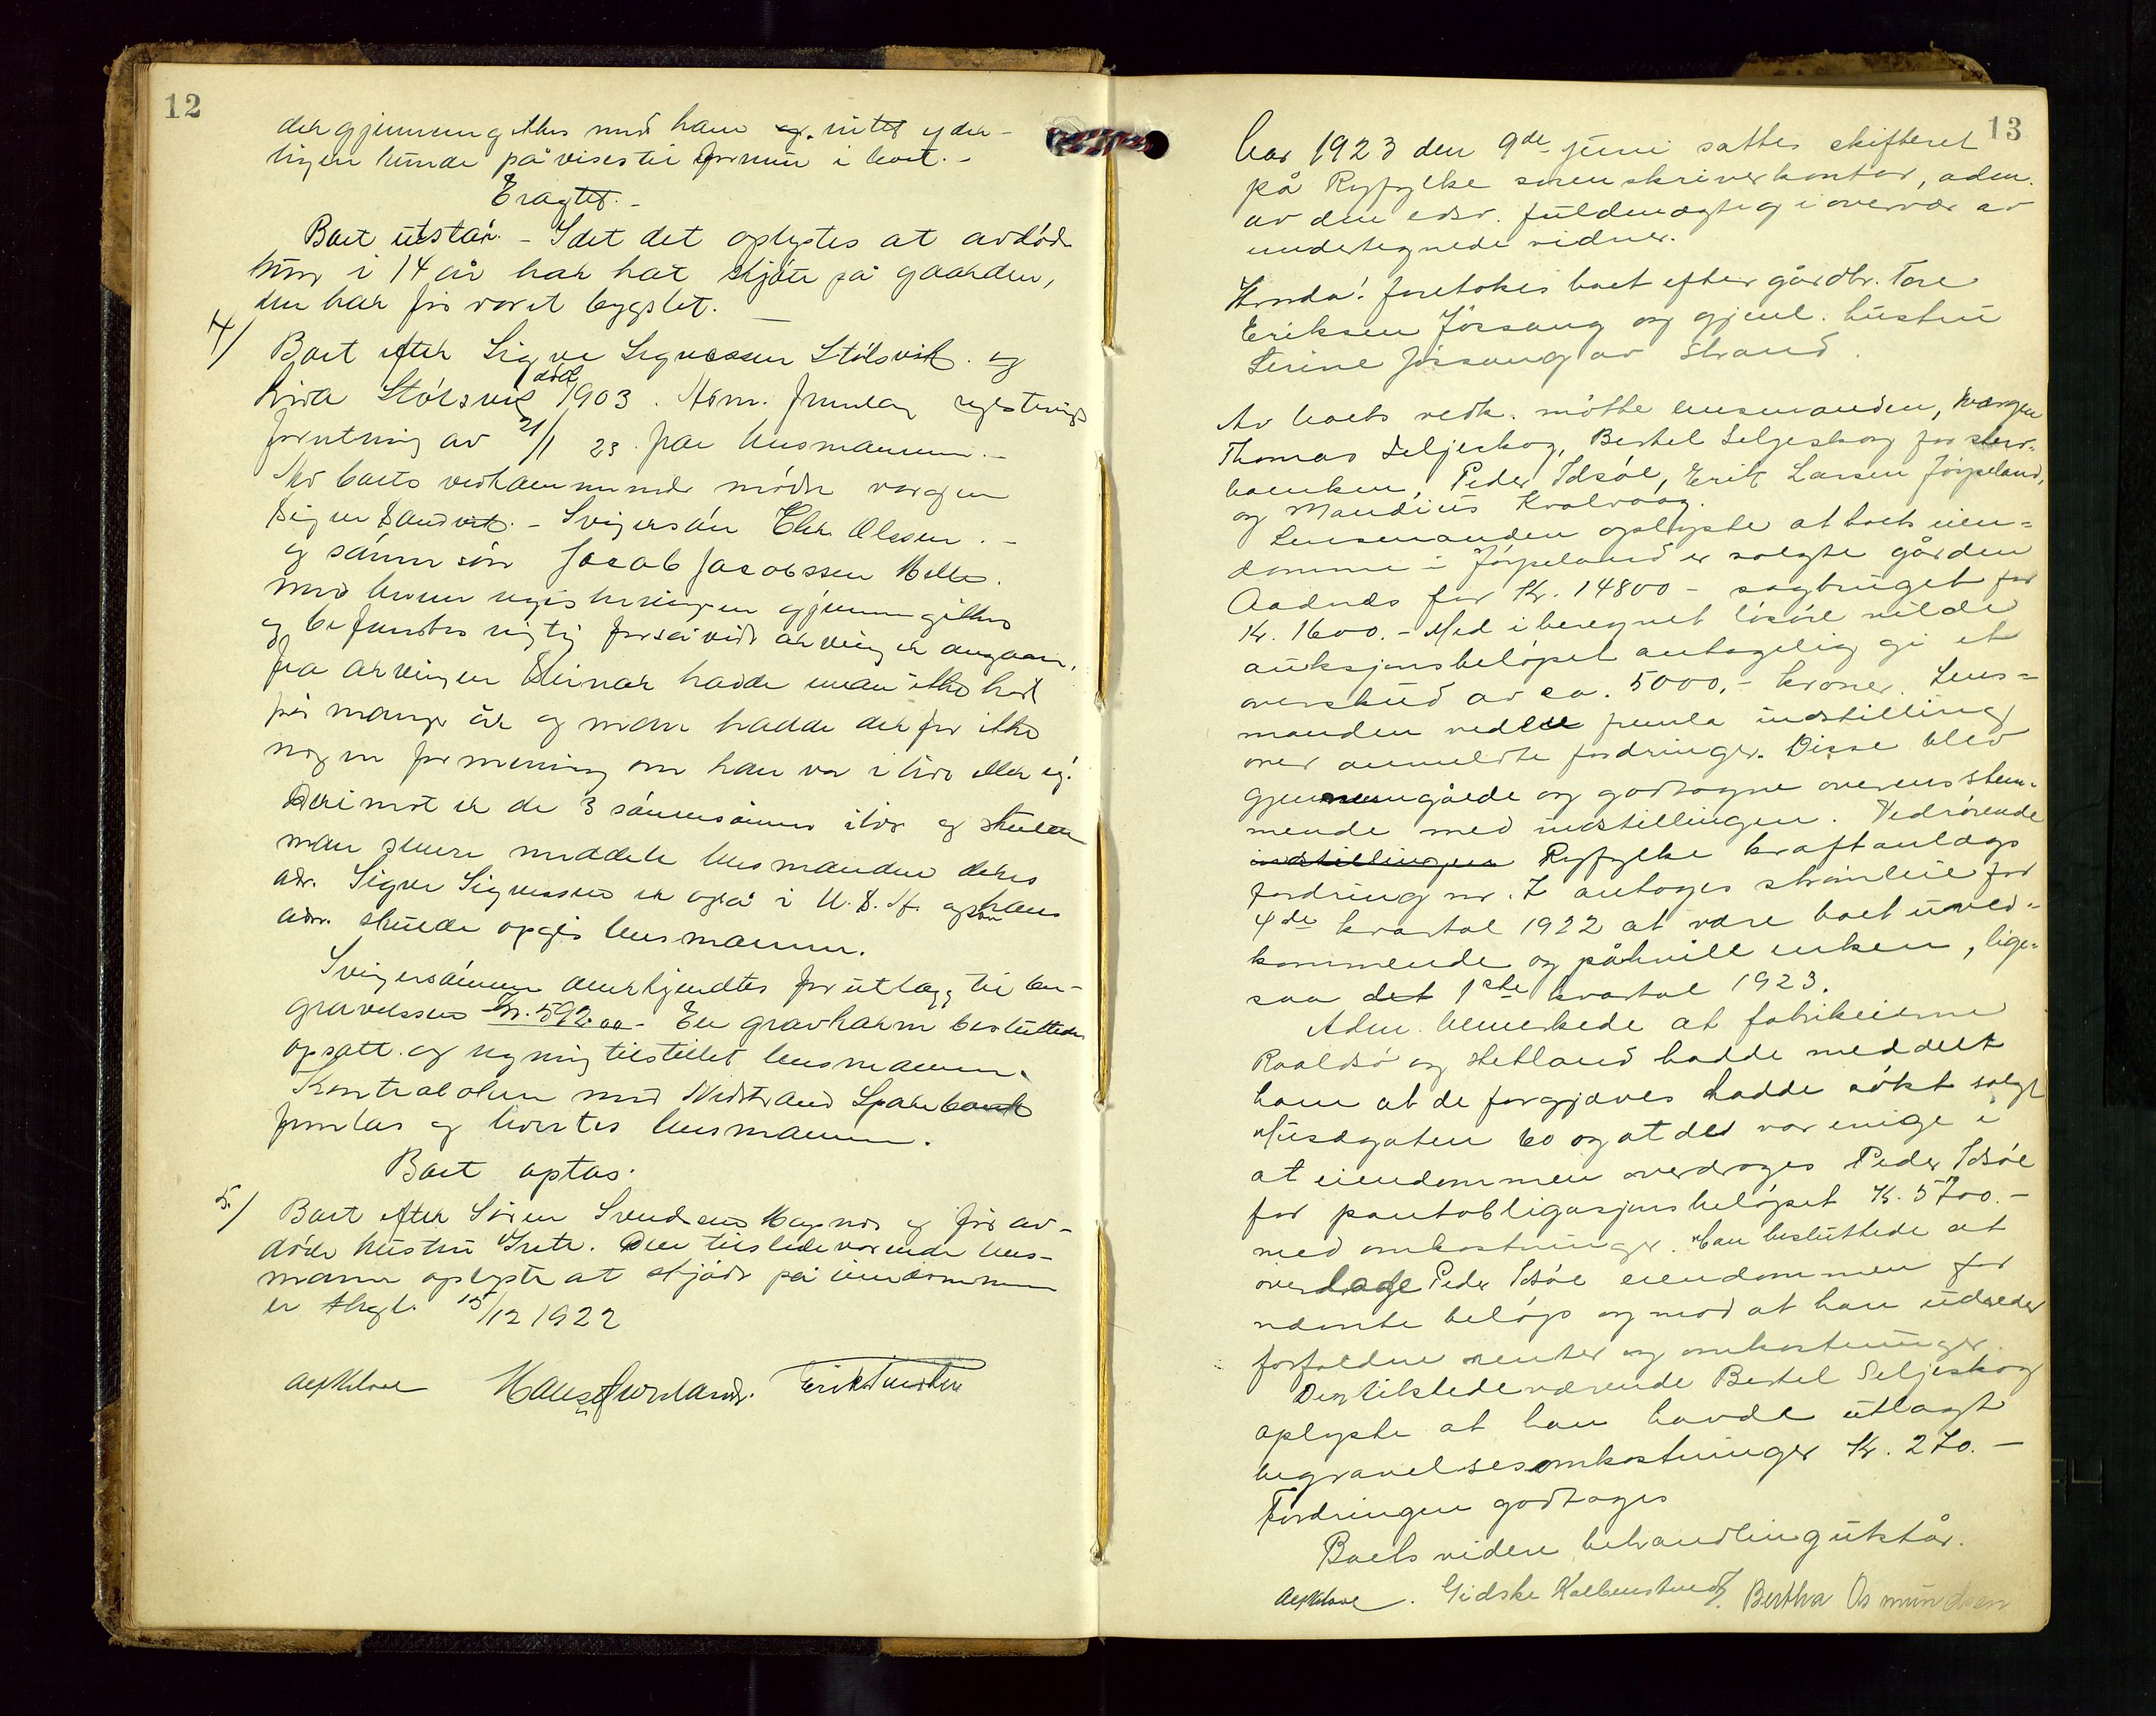 12
der gjennemgikkes med ham og intet yder-
ligere kunde påvises til formue i boet. -
Eragtet. -
Boet utstår. - Idet det oplystes at avdöde
kun i 14 år har hat skjöte på gaarden,
den har för været bygslet. -
4/ Boet efter Sigve Sigvessen Stölsvik og
Livia Stölsvik död 1903. Adm. fremlag registrerings
forretning av 21/1 23 fra lensmannen. -
Av boets vedkommende mödte vergen
Sigve Sandvik. - Svigersön Chr. Olssen. -
og sönnesön Jacob Jacobssen Helle.
Med denne registreringen gjennemgikkes
og befandtes rigtig forsåvidt arvinger angaar.
Fra arvingen Steinar hadde man ikke hört
på mange år og man hadde derfor ikke
nogen formening om han var i live eller ej.
Derimot er de 3 sönnesönner i live og skulde
man senere meddele lensmanden deres
adr. Sigve Sigvessen er også i U.S.A. og hans
adr. skulde opgis lensmannen.
Svigersönnen anerkjendtes for utlæg til be-
gravelsen kr. 592.00 - En gravharm besluttedes
opsatt og regning tilstillet lensmannen.
Kontrabolen med Nedstrand Sparebank
fremlas og levertes lensmannen.
Boet optas.
5./ Boet efter Sören Svendsens Hagenes og för av-
döde hustru Grete. Den tilstedeværende lens-
mann oplyste at skjöde på eiendommen
er thgl. 15/12 1922
Hans Erik
13
Aar 1923 den 9de juni sattes skifteret
på Ryfylke sorenskriverkontor, adm.
av den edsv. fuldmægtig i overvær av
undertegnede vidner.
Hvorda! foretokes boet efter gårdbr. Tore
Eriksen Jössang og gjenl. hustru
Serine Jössang av Strand.
Av boets vedk. mötte lensmanden, vergen
Thomas Seljeskog, Bertel Seljeskog for sterv-
boenken, Peder Idsöe, Erik Larsen Jörpeland,
og Mandius Kvalvaag.
Lensmanden oplyste at boets eien-
domme i Jörpeland er solgte gården
Aadnas for Kr. 14800 - sagbruget for
Kr. 1600. - Med iberegnet lösöre vilde
auksjonsbelöpet antagelig gi et
overskud av ca. 5000,- kroner. Lens-
manden vedlu fremla indstilling
over anmeldte fordringer. Disse blev
gjennemgåede og godtogne overensstem-
mende med indstillingen. Vedrörende
indstillingen Ryfylke kraftanlægs
fordring nr. 7 antoges strömleie for
4de kvartal 1922 at være boet uved-
kommende og påhvile enken, lige-
saa det 1ste kvartal 1923.
Adm. bemerkede at fabrikeierne
Roaldsö og Hetland hadde meddelt
ham at de forgjæves hadde sökt solgt
Musægaten 60 og at det var enige i
at eiendommen overdroges Peder Idsöe
for pantobligasjonsbelöpet Kr. 5700. -
med omkostninger. Man besluttede at
overdrage Peder Idsöe eiendommen for
nævnte belöp og mod at han udreder
forfaldne renter og omkostninger.
Den tilstedeværende Bertel Seljeskog
oplyste at han havde utlagt
begravelsesomkostninger Kr. 270. -
Fordringen godtages
Boets videre behandling utstår.
Gidske Kolbenstvedt. Bertha Osmundsen